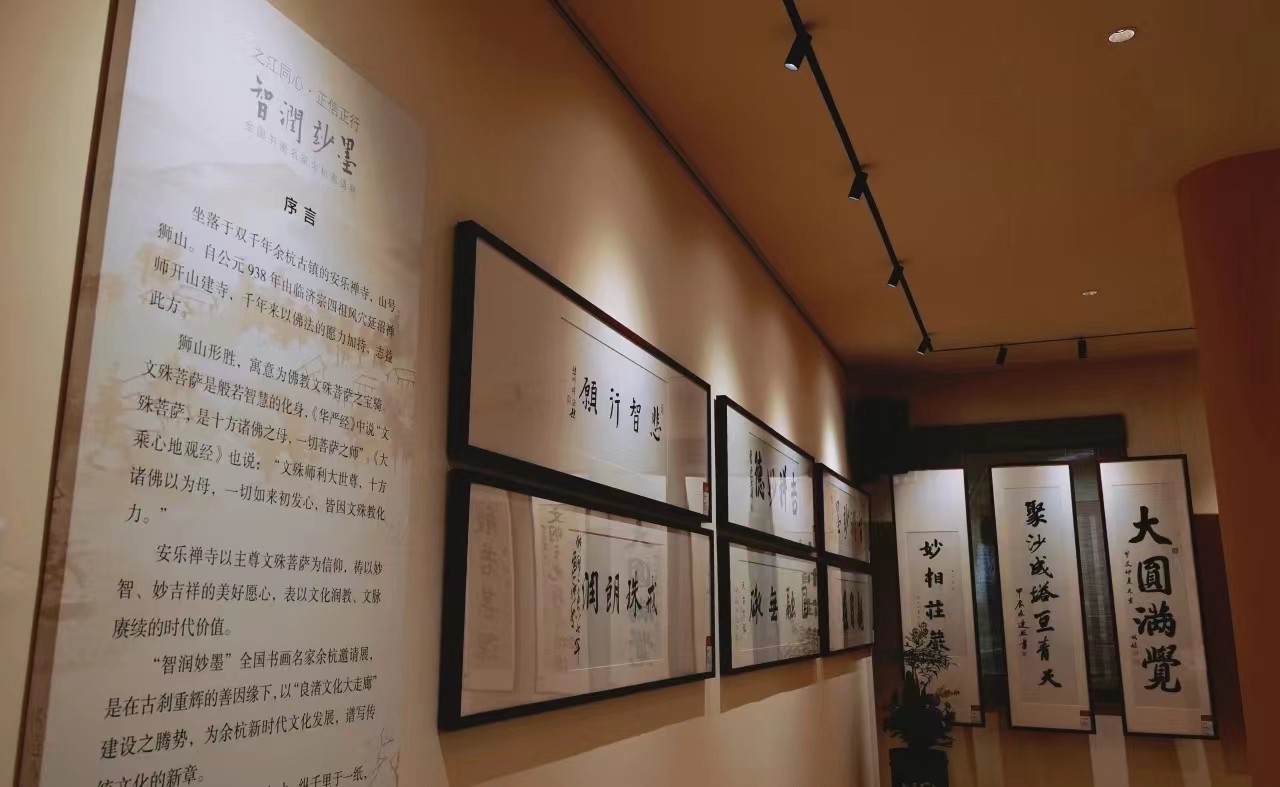 之江同心·正信正行
智潤妙墨
全国书画名家余杭邀请展
序言
坐落于双千年余杭古镇的安乐禅寺，山号
狮山。自公元938年由临济宗四祖风穴延沼禅
师开山建寺，千年来以佛法的愿力加持，志益
此方。
狮山形胜，寓意为佛教文殊菩萨之宝骑。
文殊菩萨是般若智慧的化身，《华严经》中说“文
殊菩萨，是十方诸佛之母，一切菩萨之师”，《大
乘心地观经》也说：“文殊师利大世尊，十方
诸佛以为母，一切如来初发心，皆因文殊教化
力。”
安乐禅寺以主尊文殊菩萨为信仰，祷以妙
智、妙吉祥的美好愿心，表以文化润教、文脉
赓续的时代价值。
“智润妙墨”全国书画名家余杭邀请展，
是在古刹重辉的善因缘下，以“良渚文化大走廊”
建设之腾势，为余杭新时代文化发展，谱写传
统文化的新章。
纵千里于一纸，
悲智行願
戒珠朗潤
吉祥妙德
圓融無
妙相莊嚴
聚沙成塔亘青天
大圓滿覺